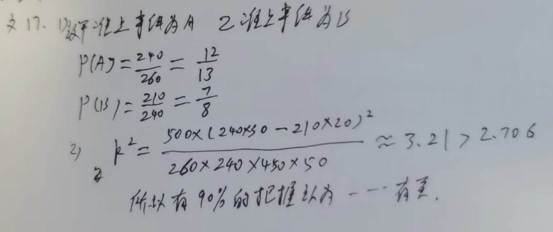 文17. 1)设甲准上事件为A 乙准上事件为B
P(A)=240/260=12/13
P(B)=210/240=7/8
2) k²=500×(240×30-210×20)²/260×240×450×50≈3.21>2.706
所以有90%的把握认为……有关.